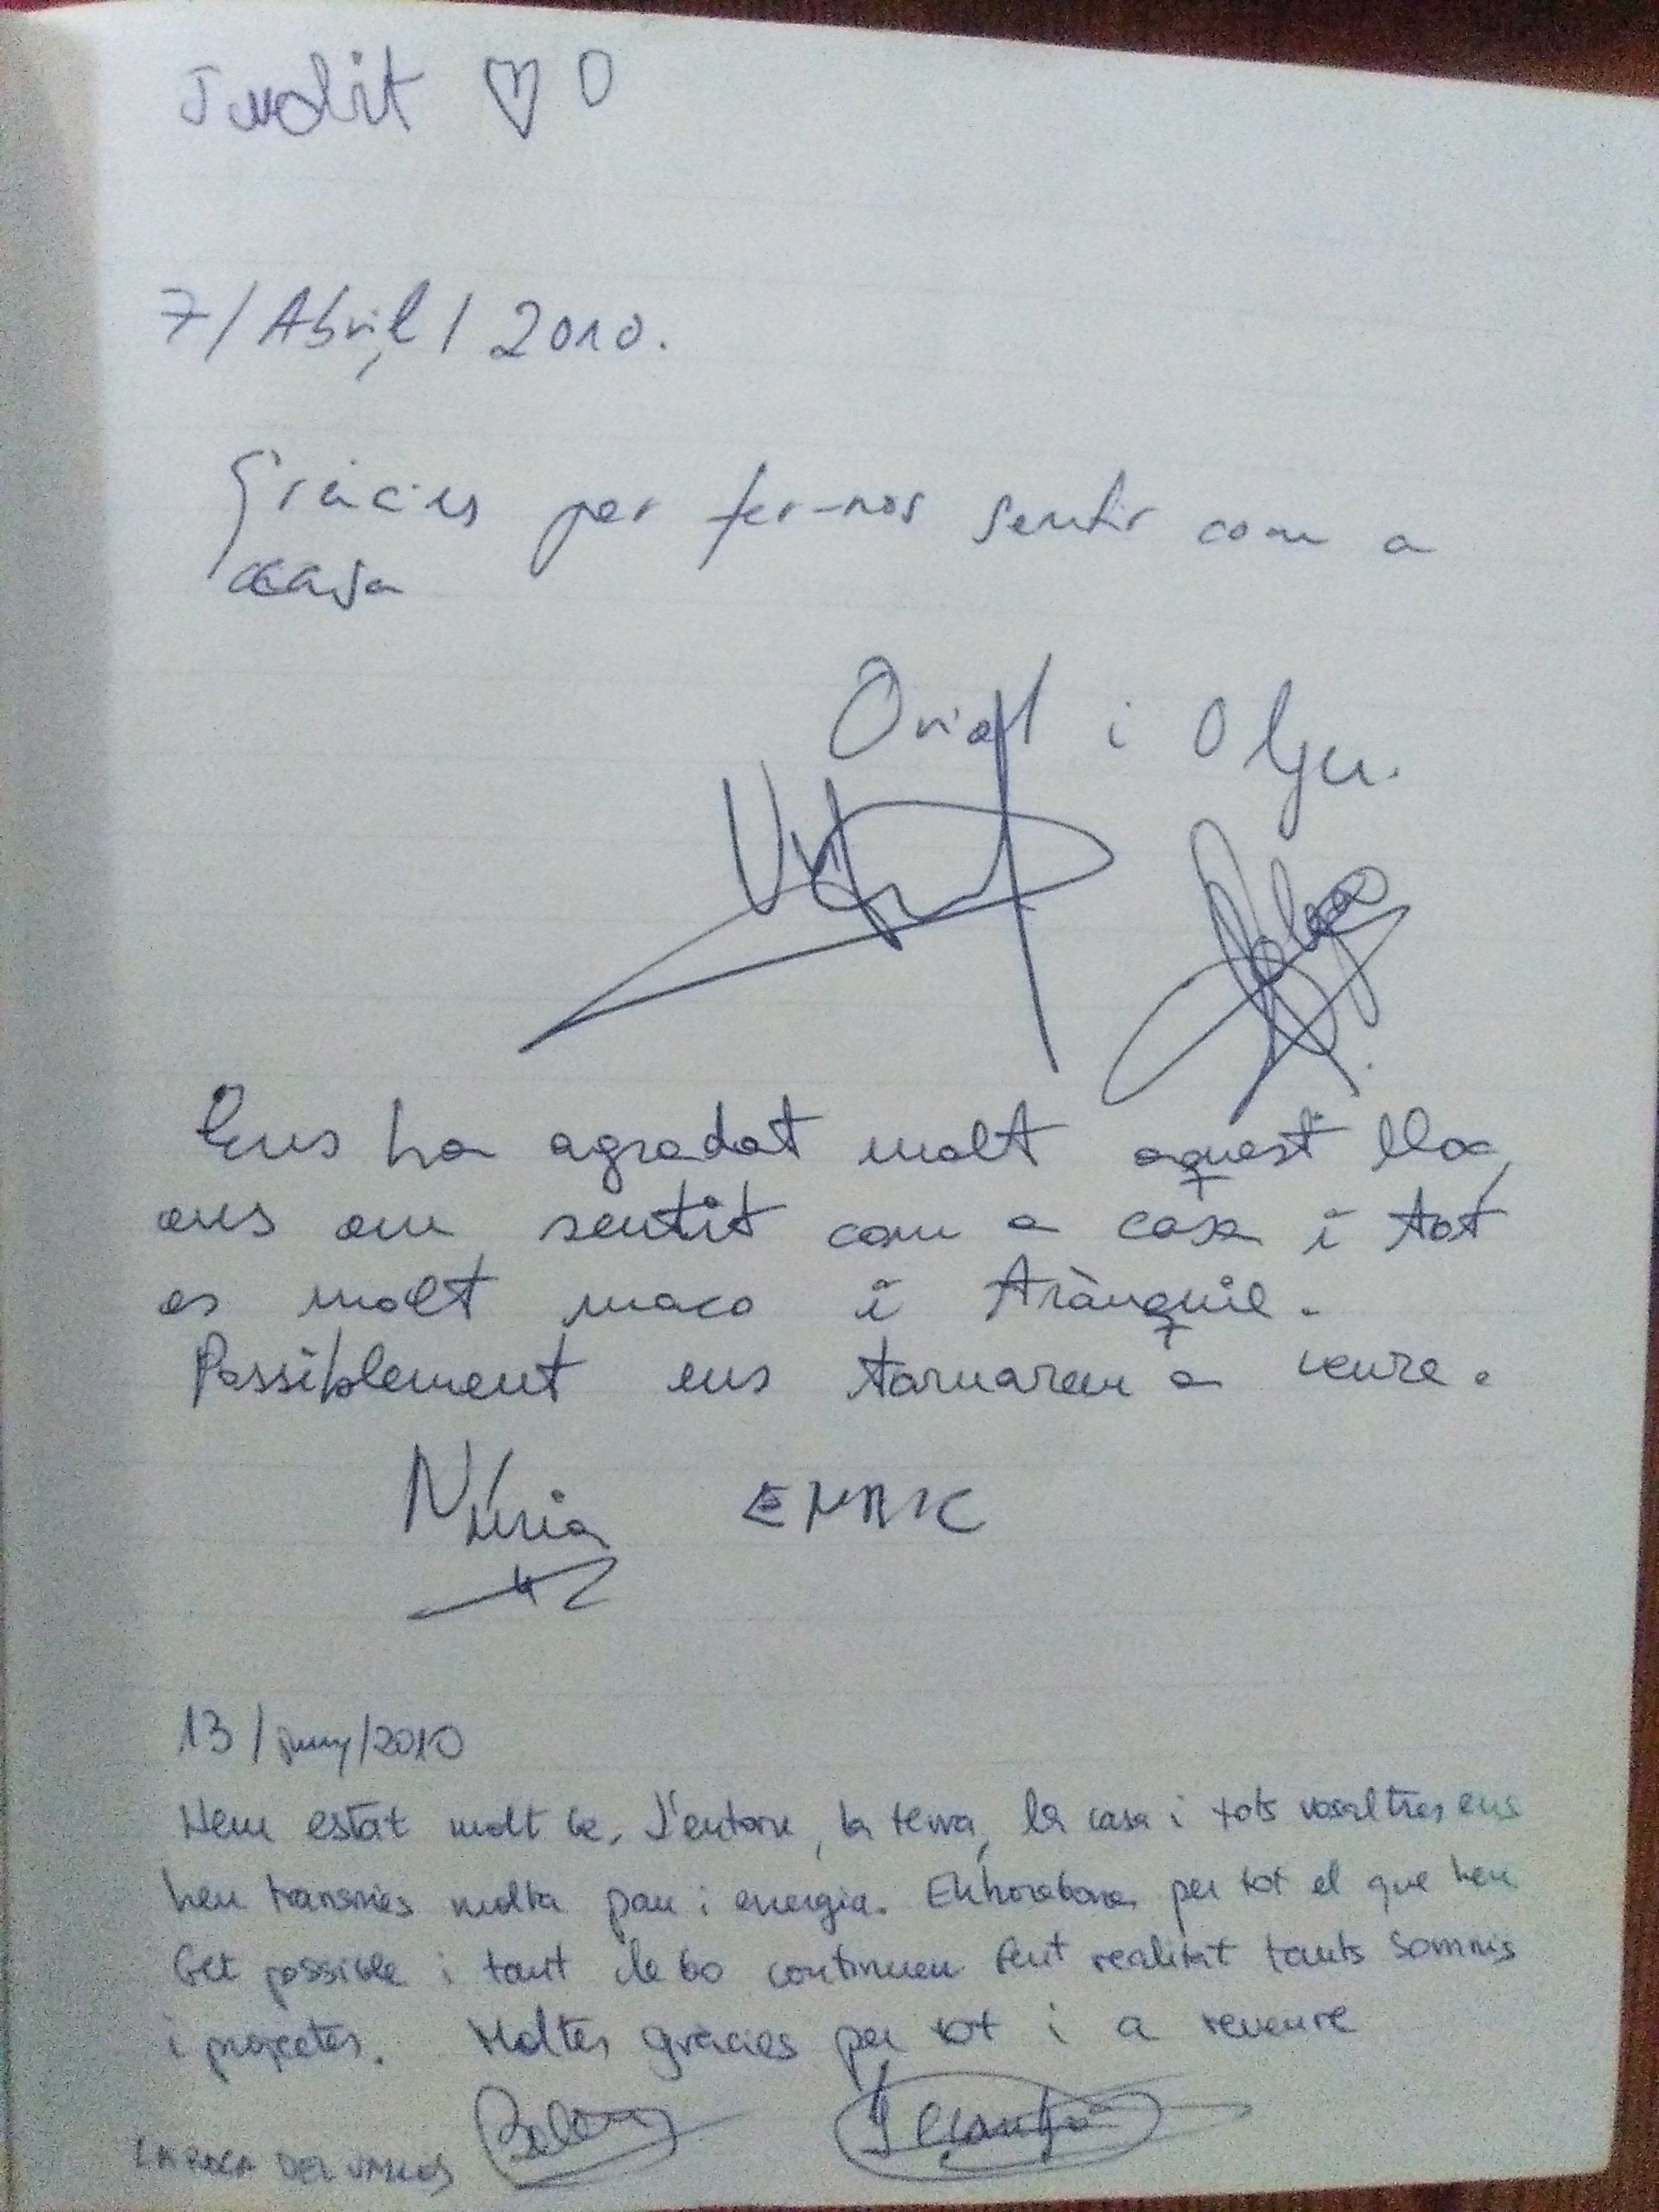 Judit ♡ O
7/Abril/2010.
Gràcies per fer-nos sentir com a
casa
Oriol i Olga.
Ens ha agradat molt aquest lloc,
ens em sentit com a casa i tot
es molt maco i trànquil.
Possiblement ens tornarem a veure.
Núria
13/juny/2010
Hem estat molt be, l'entorn, la terra, la casa i tots vosaltres ens
heu transmès molta pau i energia. Enhorabona per tot el que heu
fet possible i tant de bo continueu fent realitat tants somnis
i projectes. Moltes gràcies per tot i a reveure
LA ROCA DEL VALLES